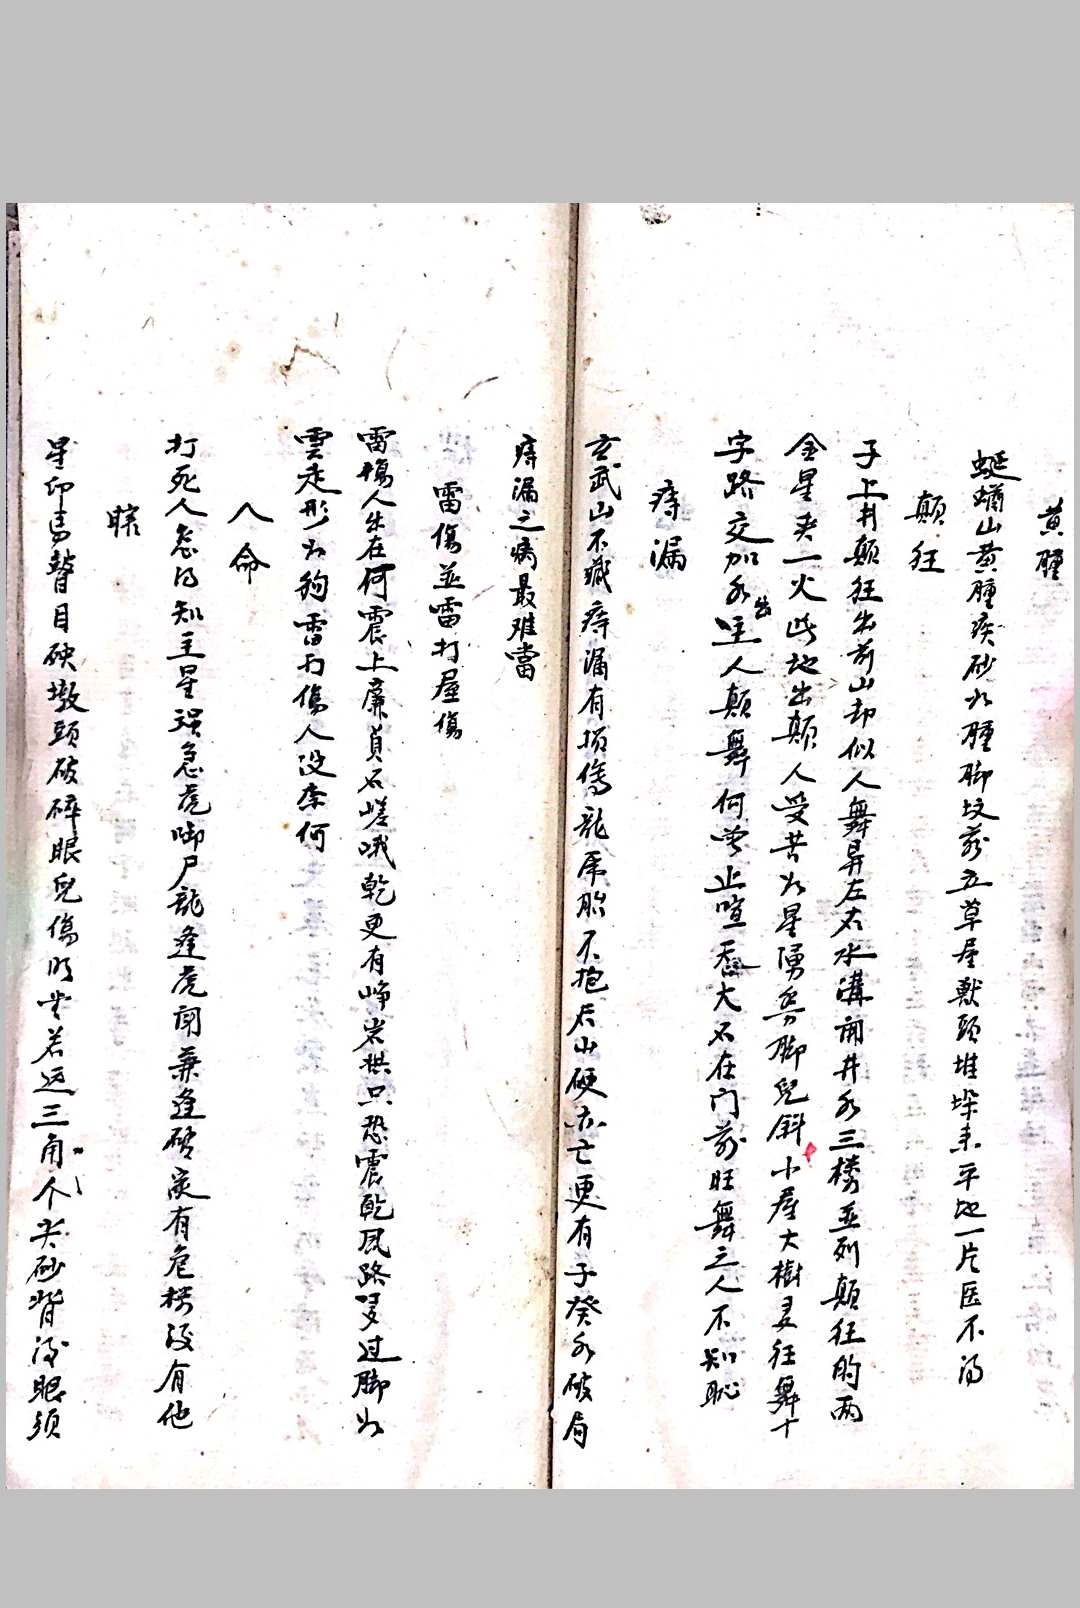 黄腫
蜒蝤山黄腫疾砂水腫脚坟前立草屋獸頭堆垛未平地一片医不得
颠狂
子上井颠狂出前山却似人舞弄左右水溝開井水三樓並列颠狂的两
金星夹一火此地出颠人受苦水星勇勞脚兒斜小屋大樹是狂舞十
字路交加水出主人颠舞何曾止喧天大石在门前旺舞之人不知恥
痔漏
玄武山不藏痔漏有損傷龍虎胎不抱后山硬亦亡更有子癸水破局
痔漏之病最难當
雷傷並雷打屋傷
雷傷人生在何震上廉貞石嵯峨乾更有峥岩拱只恐震乾風路多过脚水
雲走形水狗雷打傷人没奈何
人命
打死人怎得知主星强急虎啣尸龍逢虎開兼逢破家有危樓没有他
瞎
星印馬瞽目砄墩頭破碎眼兒傷明堂若还三角个尖砂背後眼須